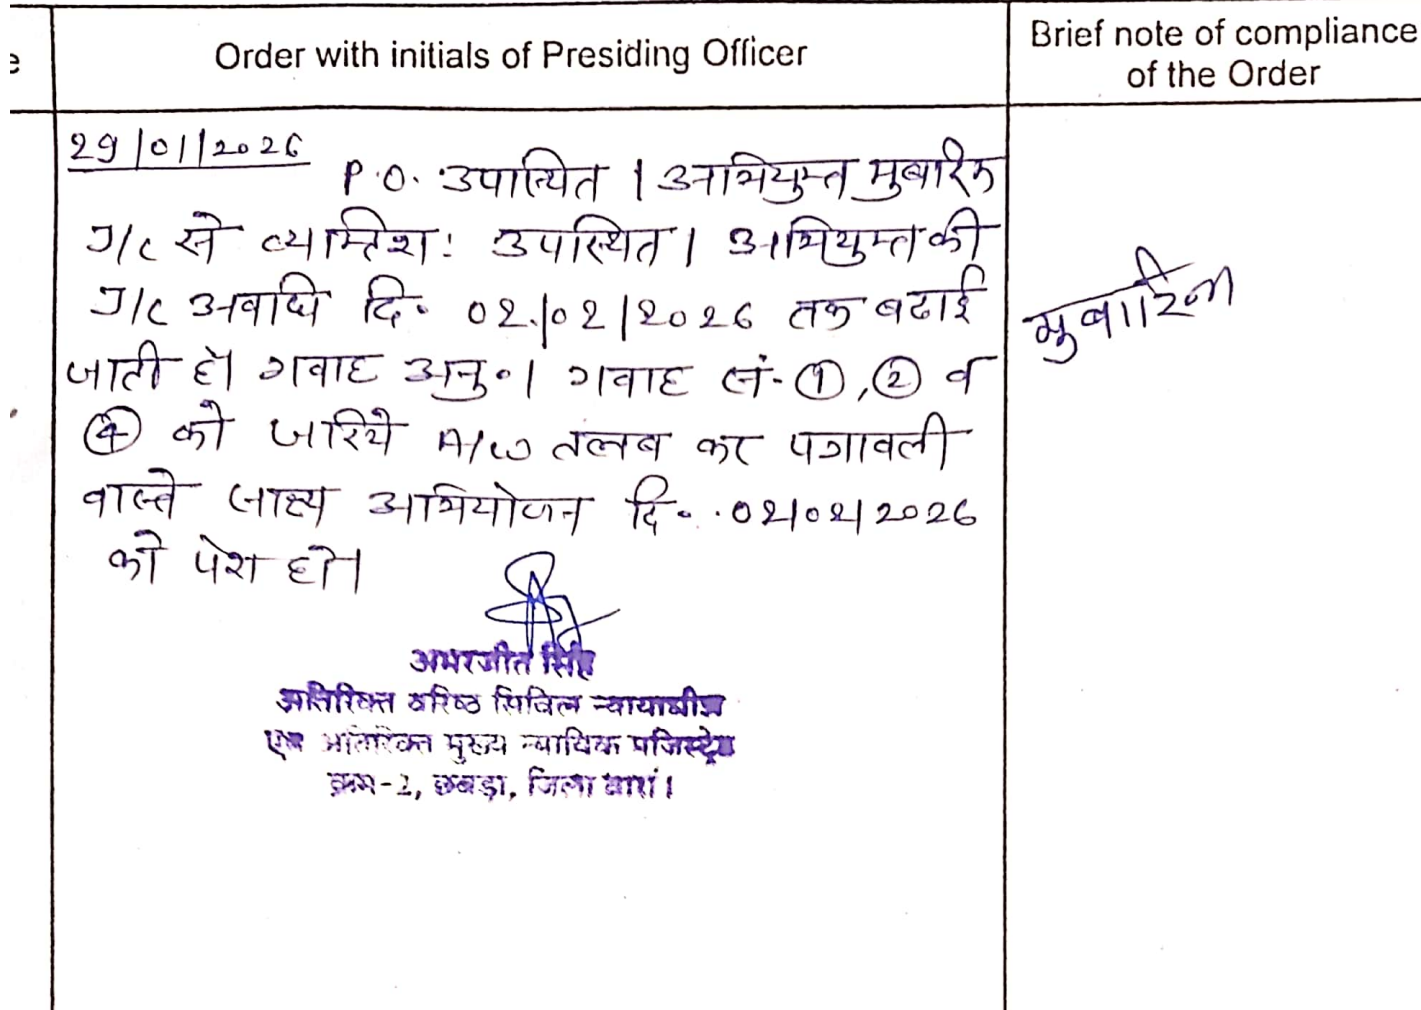 Order with initials of Presiding Officer
Brief note of compliance
of the Order
29/01/2026
P.O. उपस्थित । अभियुक्त मुबारिक
J/C से व्यक्तिशः उपस्थित । अभियुक्त की
J/C अवधि दि० 02/02/2026 तक बढाई
जाती है। गवाह अनु०। गवाह सं- ①, ② व
④ को जरिये A/W तलब कर पत्रावली
वास्ते साक्ष्य अभियोजन दि० 02/02/2026
को पेश हो।
मुबारिक
अमरजीत सिंह
अतिरिक्त वरिष्ठ सिविल न्यायाधीश
एवं अतिरिक्त मुख्य न्यायिक मजिस्ट्रेट
क्रम-2, छबड़ा, जिला बारां।